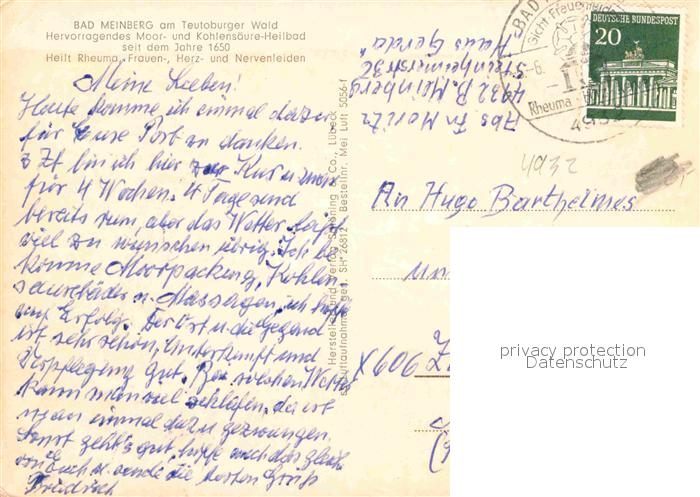 BAD MEINBERG am Teutoburger Wald
Hervorragendes Moor- und Kohlensäure-Heilbad
seit dem Jahre 1650
Heilt Rheuma, Frauen-, Herz- und Nervenleiden
Meine Lieben!
Heute komme ich einmal dazu
für Eure Post zu danken.
Z Zt. bin ich hier zur Kur u. zwar
für 4 Wochen. 4 Tage sind
bereits rum, aber das Wetter läßt
viel zu wünschen übrig. Ich be
komme Moorpackung, Kohlen
säurebäder u. Massagen, ich hoffe
auf Erfolg. Der Ort u. die Gegend
ist sehr schön, Unterkunft und
Verpflegung gut. Bei solchem Wetter
kann man viel schlafen, da ist
man einmal dazu gezwungen.
Sonst geht's gut, hoffe auch das gleiche
von Euch u. sende die besten Grüße
Friedrich
Hersteller und Verlag Schöning & Co., Lübeck
Luftaufnahme gen. SH 26812 · Bestellnr. Mei Luft 5056-f
Abs. Fr. Moritz
4932 B. Meinberg
Steinheimerstr. 32
Haus Gerda
BAD
Gicht Frauenleiden
Rheuma
4932
DEUTSCHE BUNDESPOST
20
4932
An Hugo Barthelmes
X606
privacy protection
Datenschutz